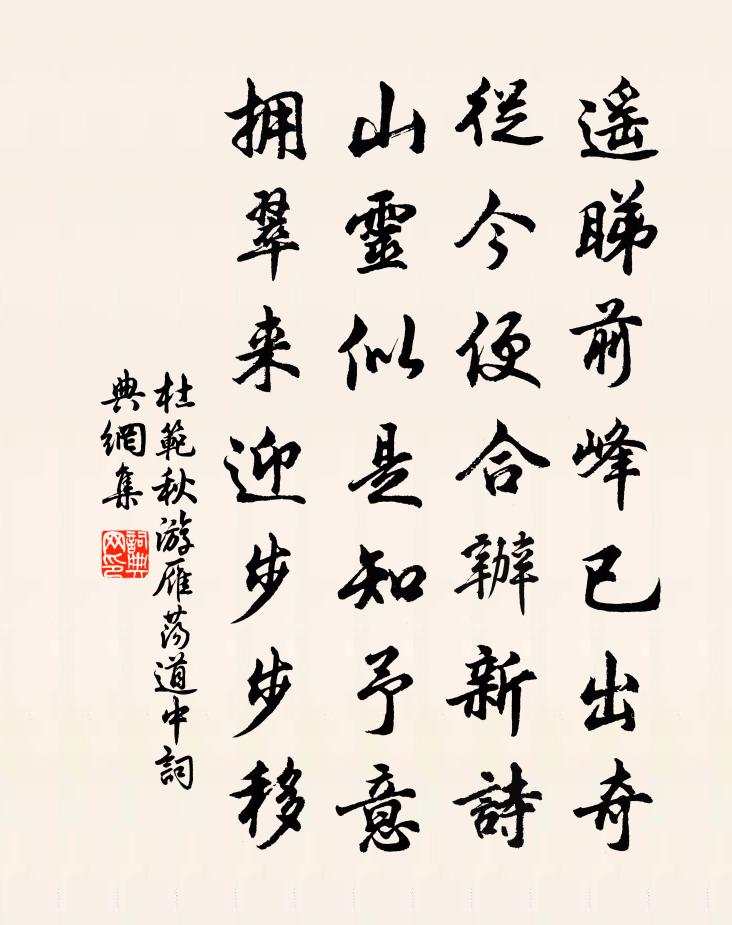 遥睇前峰已出奇
從今便合辦新詩
山靈似是知予意
拥翠来迎步步移
杜範秋游雁蕩道中詞
典網集
詞典
网印